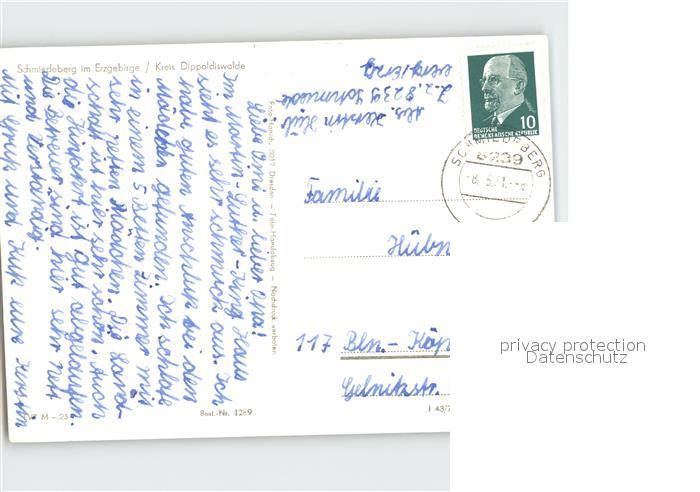 Schmiedeberg im Erzgebirge / Kreis Dippoldiswalde
Abs. Kerstin Hüb
z.Z. 8239 Schmiede
berg/Erzg
DEUTSCHE
DEMOKRATISCHE REPUBLIK
10
SCHMIEDEBERG
8239
-8.5.71.--8
Liebe Omi u. lieber Opa!
Im Martin-Luther-King Haus
sieht es sehr schmuck aus. Ich
habe guten Anschluß bei den
Mädchen gefunden. Ich schlafe
in einem 5 Betten Zimmer mit
sehr netten Mädchen. Die Land-
schaft ist hier sehr schön. Auch
die Hinfahrt ist gut abgelaufen.
Die Betreuer sind hier sehr nett
und verständig.
Mit Gruß und Kuß eure Kerstin
Foto-Handr. 8017 Dresden — Foto-Handabzug — Nachdruck verboten
Familie
Hübn
117 Bln.- Köp
Gelnitzstr.
M -.25
Best.-Nr. 1289
J 43/7
privacy protection
Datenschutz